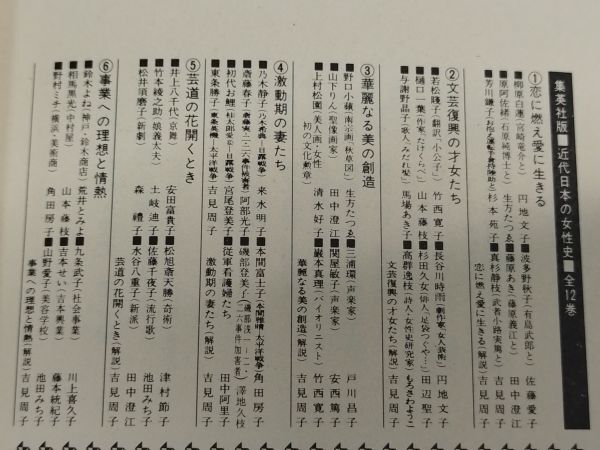 集英社版■近代日本の女性史■全12巻
①恋に燃え愛に生きる
■柳原白蓮(宮崎竜介と) 円地文子
■原阿佐緒(石原純博士と) 生方たつゑ
■芳川鎌子(お抱え運転手倉持陸助と) 杉本苑子
■波多野秋子(有島武郎と) 佐藤愛子
■藤原あき(藤原義江と) 田中澄江
■真杉静枝(武者小路実篤と) 吉見周子
恋に燃え愛に生きる(解説)
②文芸復興の才女たち
■若松賤子(翻訳『小公子』) 竹西寛子
■樋口一葉(作家『たけくらべ』) 山本藤枝
■与謝野晶子(歌人『みだれ髪』) 馬場あき子
■長谷川時雨(劇作家『女人芸術』) 円地文子
■杉田久女(俳人『足袋つぐや…』) 田辺聖子
■高群逸枝(詩人・女性史研究家) もろさわようこ
文芸復興の才女たち(解説) 吉見周子
③華麗なる美の創造
■野口小蘋(南宗画『秋草図』) 生方たつゑ
■山下りん(聖像画家) 田中澄江
■上村松園(美人画・女性初の文化勲章) 清水好子
■三浦環(声楽家) 戸川昌子
■関屋敏子(声楽家) 安西篤子
■巌本真理(バイオリニスト) 竹西寛子
華麗なる美の創造(解説) 吉見周子
④激動期の妻たち
■乃木静子(乃木希典=日露戦争) 来水明子
■斎藤春子(斎藤実=二・二六事件被害者) 阿部光子
■初代お鯉(桂太郎愛妾=日露戦争) 宮尾登美子
■東条勝子(東条英機=太平洋戦争) 吉見周子
■本間富士子(本間雅晴=太平洋戦争) 角田房子
■磯部登美子(磯部浅一=二・二六事件加害者) 澤地久枝
■従軍看護婦たち 田中阿里子
激動期の妻たち(解説) 吉見周子
⑤芸道の花開くとき
■井上八千代(京舞) 安田富貴子
■竹本綾之助(娘義太夫) 土岐迪子
■松井須磨子(新劇) 森禮子
■松旭斎天勝(奇術) 津村節子
■佐藤千夜子(流行歌) 池田みち子
■水谷八重子(新派) 田中澄江
芸道の花開くとき(解説) 吉見周子
⑥事業への理想と情熱
■鈴木よね(神戸・鈴木商店) 荒井とみよ
■相馬黒光(中村屋) 山本藤枝
■野村ミチ(横浜・美術商) 角田房子
■九条武子(社会事業) 川上喜久子
■吉本せい(吉本興業) 藤本統紀子
■山野愛子(美容学校) 池田みち子
事業への理想と情熱(解説) 吉見周子